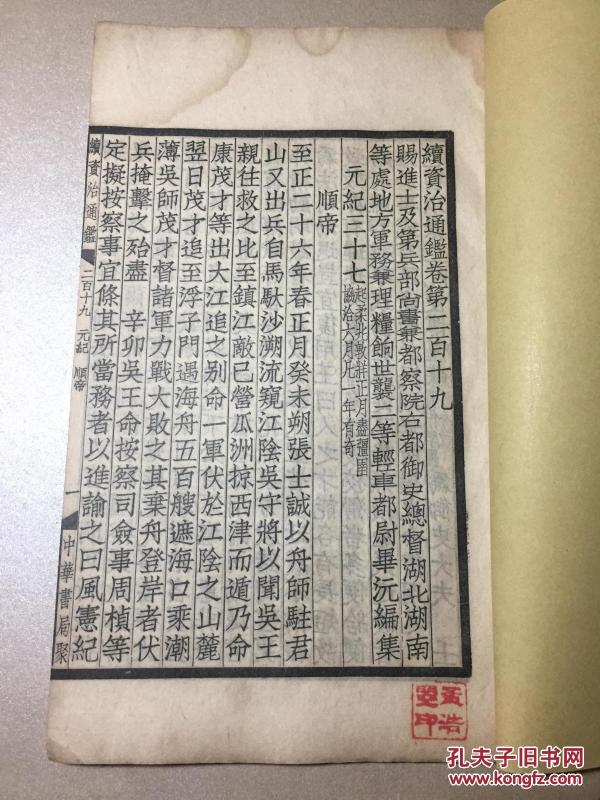 續資治通鑑卷第二百十九
賜進士及第兵部尚書兼都察院右都御史總督湖北湖南
等處地方軍務兼理糧餉世襲二等輕車都尉畢沅編集
元紀三十七起柔兆敦牂正月盡彊圉
協洽六月凡一年有奇
順帝
至正二十六年春正月癸未朔張士誠以舟師駐君
山又出兵自馬馱沙溯流窺江陰吳守將以聞吳王
親往救之比至鎮江敵已營瓜洲掠西津而遁乃命
康茂才等出大江追之别命一軍伏於江陰之山麓
翌日茂才追至浮子門遇海舟五百艘遮海口乘潮
薄吳師茂才督諸軍力戰大敗之其棄舟登岸者伏
兵掩擊之殆盡 辛卯吳王命按察司僉事周楨等
定擬按察事宜條其所當務者以進諭之曰風憲紀
續資治通鑑 二百十九 元記 順帝 一 中華書局聚
孔夫子旧书网
www.kongfz.com